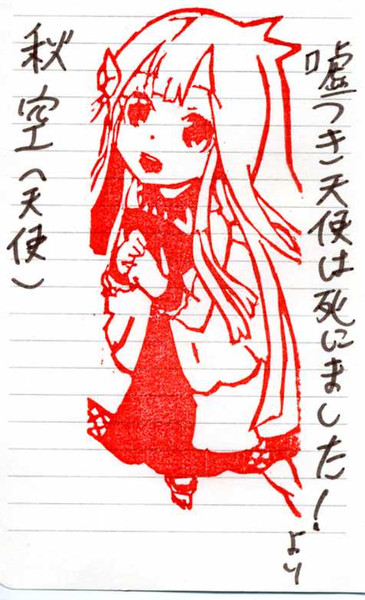 嘘つき天使は死にました!より
秋空(天使)